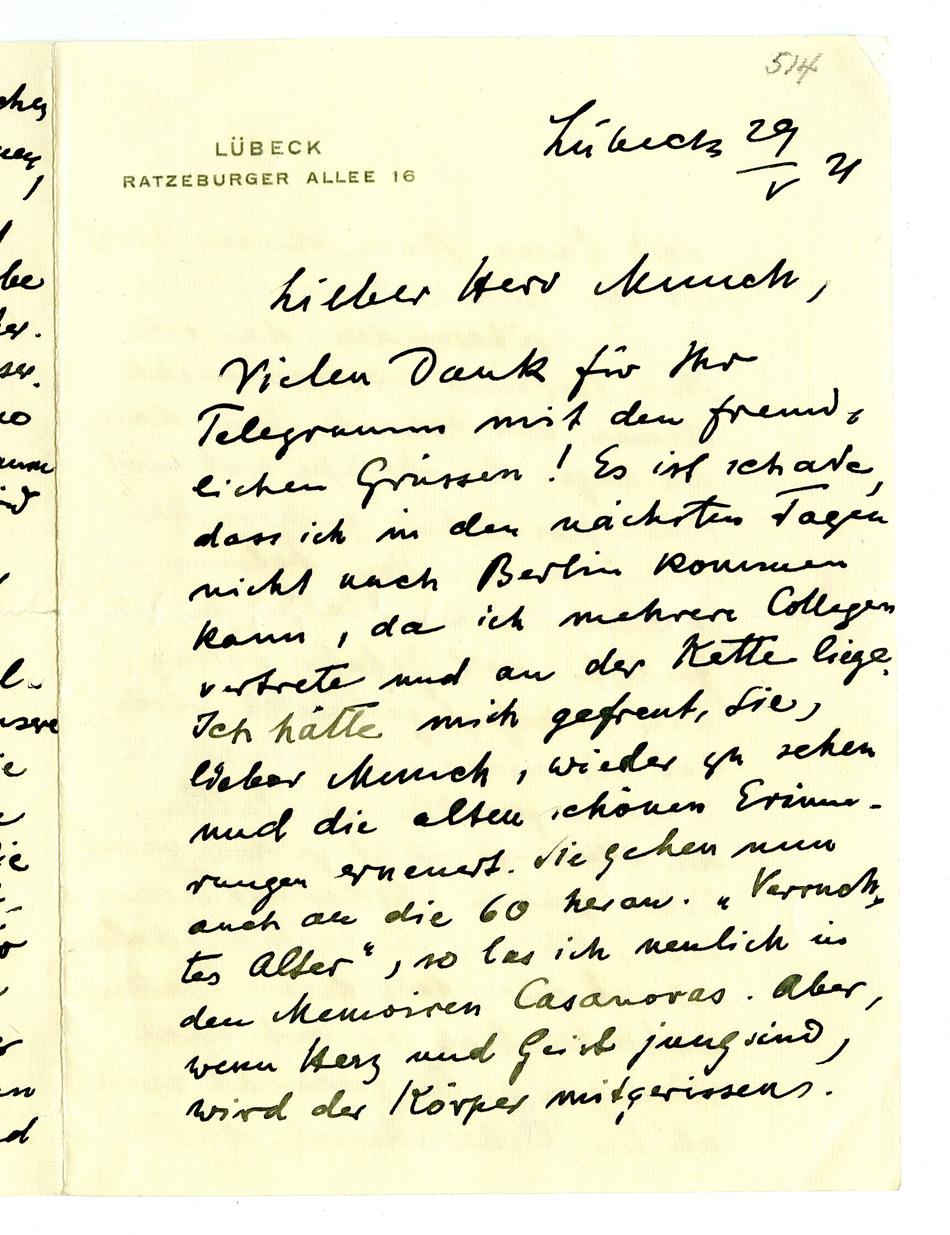 514
LÜBECK
RATZEBURGER ALLEE 16
Lübeck 29
V 21
Lieber Herr Munch,
Vielen Dank für Ihr
Telegramm mit den freund-
lichen Grüssen! Es ist schade,
dass ich in den nächsten Tagen
nicht nach Berlin kommen
kann, da ich mehrere Collegen
vertrete und an der Kette liege.
Ich hätte mich gefreut, Sie,
lieber Munch, wieder zu sehen
und die alten schönen Erinne-
rungen erneuert. Sie gehen nun
auch an die 60 heran. „Verruch-
tes Alter“, so las ich neulich in
den Memoiren Casanovas. Aber,
wenn Herz und Geist jung sind,
wird der Körper mitgerissen.